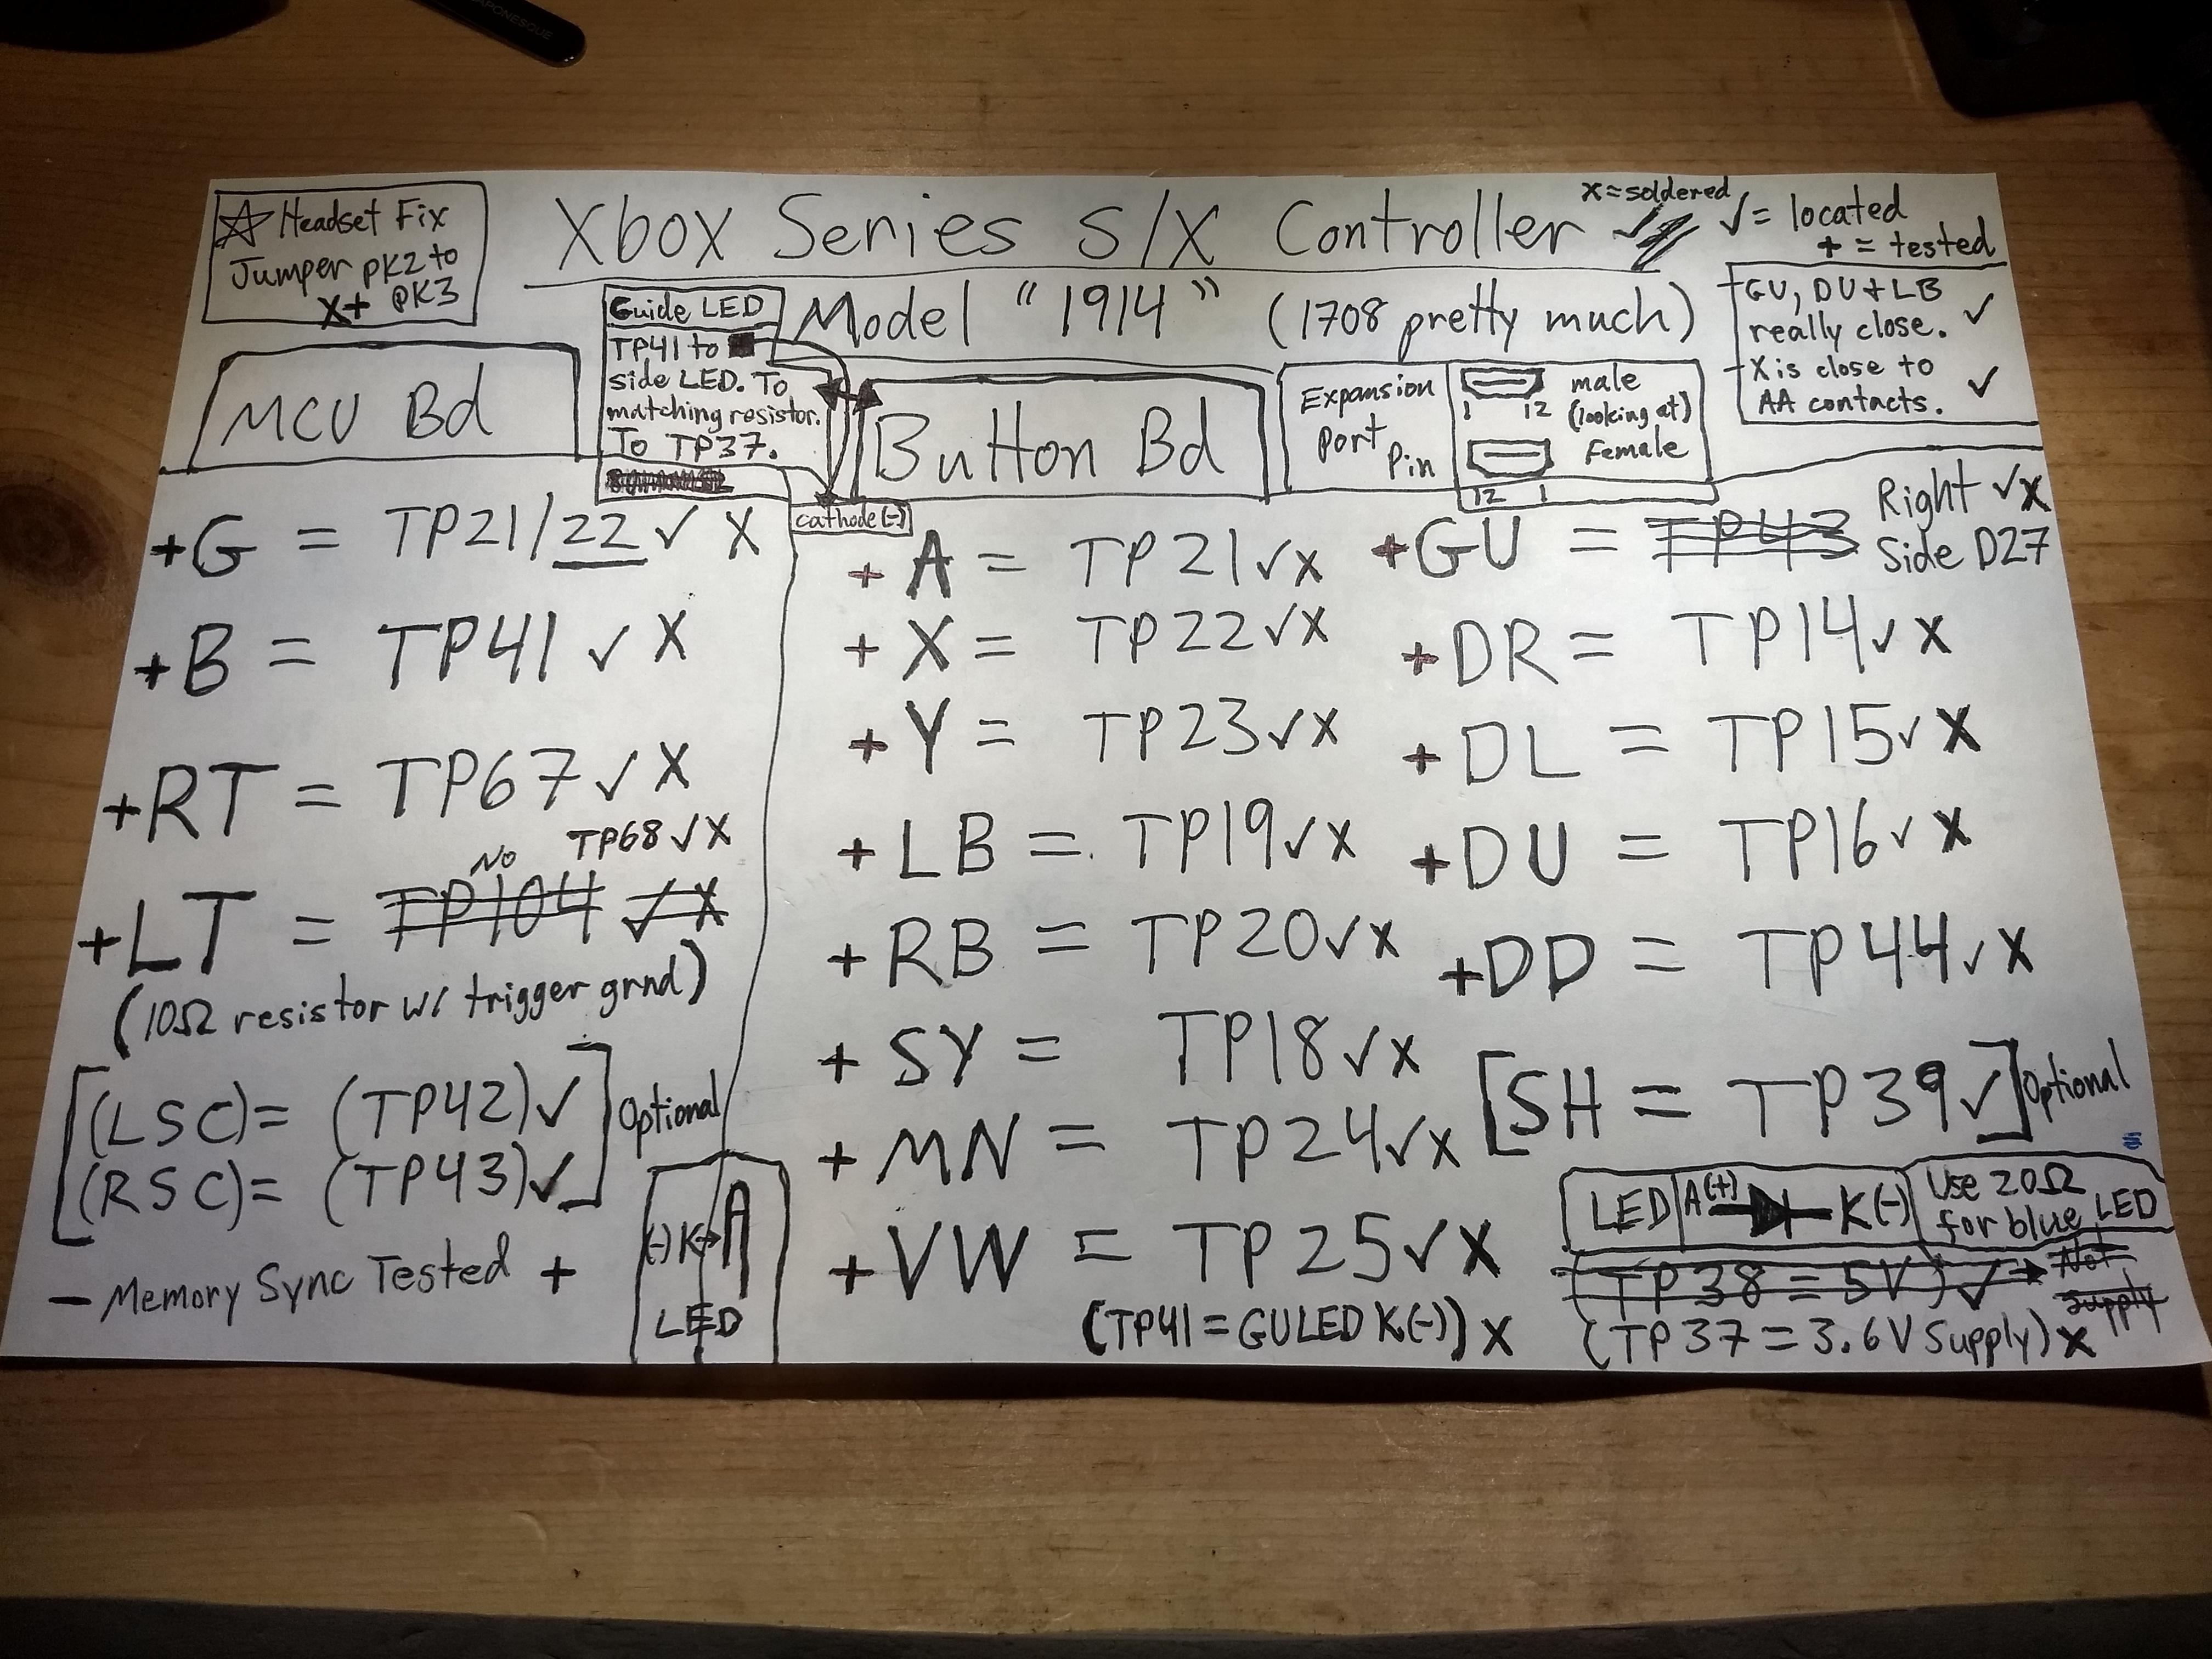 JAPONESQUE
☆ Headset Fix
Jumper PK2 to
X+ PK3
Xbox Series S/X Controller ✓
x = soldered
✓ = located
+ = tested
Model "1914" (1708 pretty much)
- GU, DU + LB
really close. ✓
- X is close to
AA contacts. ✓
Guide LED
TP41 to
side LED. To
matching resistor.
To TP37.
cathode (-)
MCU Bd
Button Bd
Expansion
Port Pin
male
(looking at)
1 12
Female
12 1
+G = TP21/22 ✓ X
+B = TP41 ✓ X
+RT = TP67 ✓ X
TP68 ✓ X
No
+LT = TP104 ✓ X
(10Ω resistor w/ trigger grnd)
[(LSC) = (TP42)✓
(RSC) = (TP43)✓] Optional
- Memory Sync Tested +
(-) K→A
LED
+ A = TP21 ✓ x
+ X = TP22 ✓ x
+ Y = TP23 ✓ x
+ LB = TP19 ✓ x
+ RB = TP20 ✓ x
+ SY = TP18 ✓ x
+ MN = TP24 ✓ x
+ VW = TP25 ✓ X
(TP41 = GULED K(-)) X
+GU = TP43 Right ✓ x
Side D27
+DR = TP14 ✓ X
+DL = TP15 ✓ X
+DU = TP16 ✓ X
+DD = TP44 ✓ X
[SH = TP39 ✓] Optional
LED A(+) K(-) Use 20Ω
for blue LED
(TP38 = 5V) ✓ → Not
Supply
(TP37 = 3.6V Supply) x